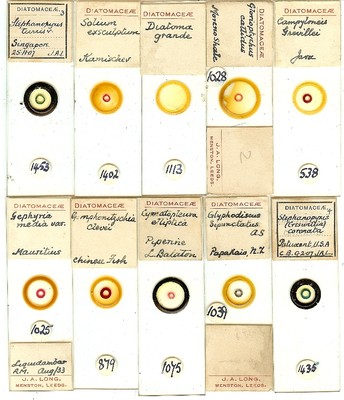 DIATOMACEÆ
Stephanopyxis
Turris v.
Singapore
25.11.07 J.A.L.
1453
DIATOMACEÆ
Solium
exsculptum
Kamischev
1402
DIATOMACEÆ
Diatoma
grande
1113
DIATOMACEÆ
Moreno Shale
1028
J. A. LONG,
MENSTON, LEEDS.
2
DIATOMACEÆ
Campyloneis
Grevillei
Java
538
DIATOMACEÆ
Gephyria
media var.
Mauritius
1025
Liquidambar
R.M. Aug/33
J. A. LONG,
MENSTON, LEEDS.
DIATOMACEÆ
Gomphonitzschia
Clevei
Chinese Fish
879
DIATOMACEÆ
Cymatopleura
eliptica
L. Balaton
1075
DIATOMACEÆ
Glyphodiscus
Papakaio, N.Z.
1039
J. A. LONG,
MENSTON, LEEDS.
DIATOMACEÆ
Stephanopyxis
(Creswellia)
coronata
U.S.A
J.A.L.
1435